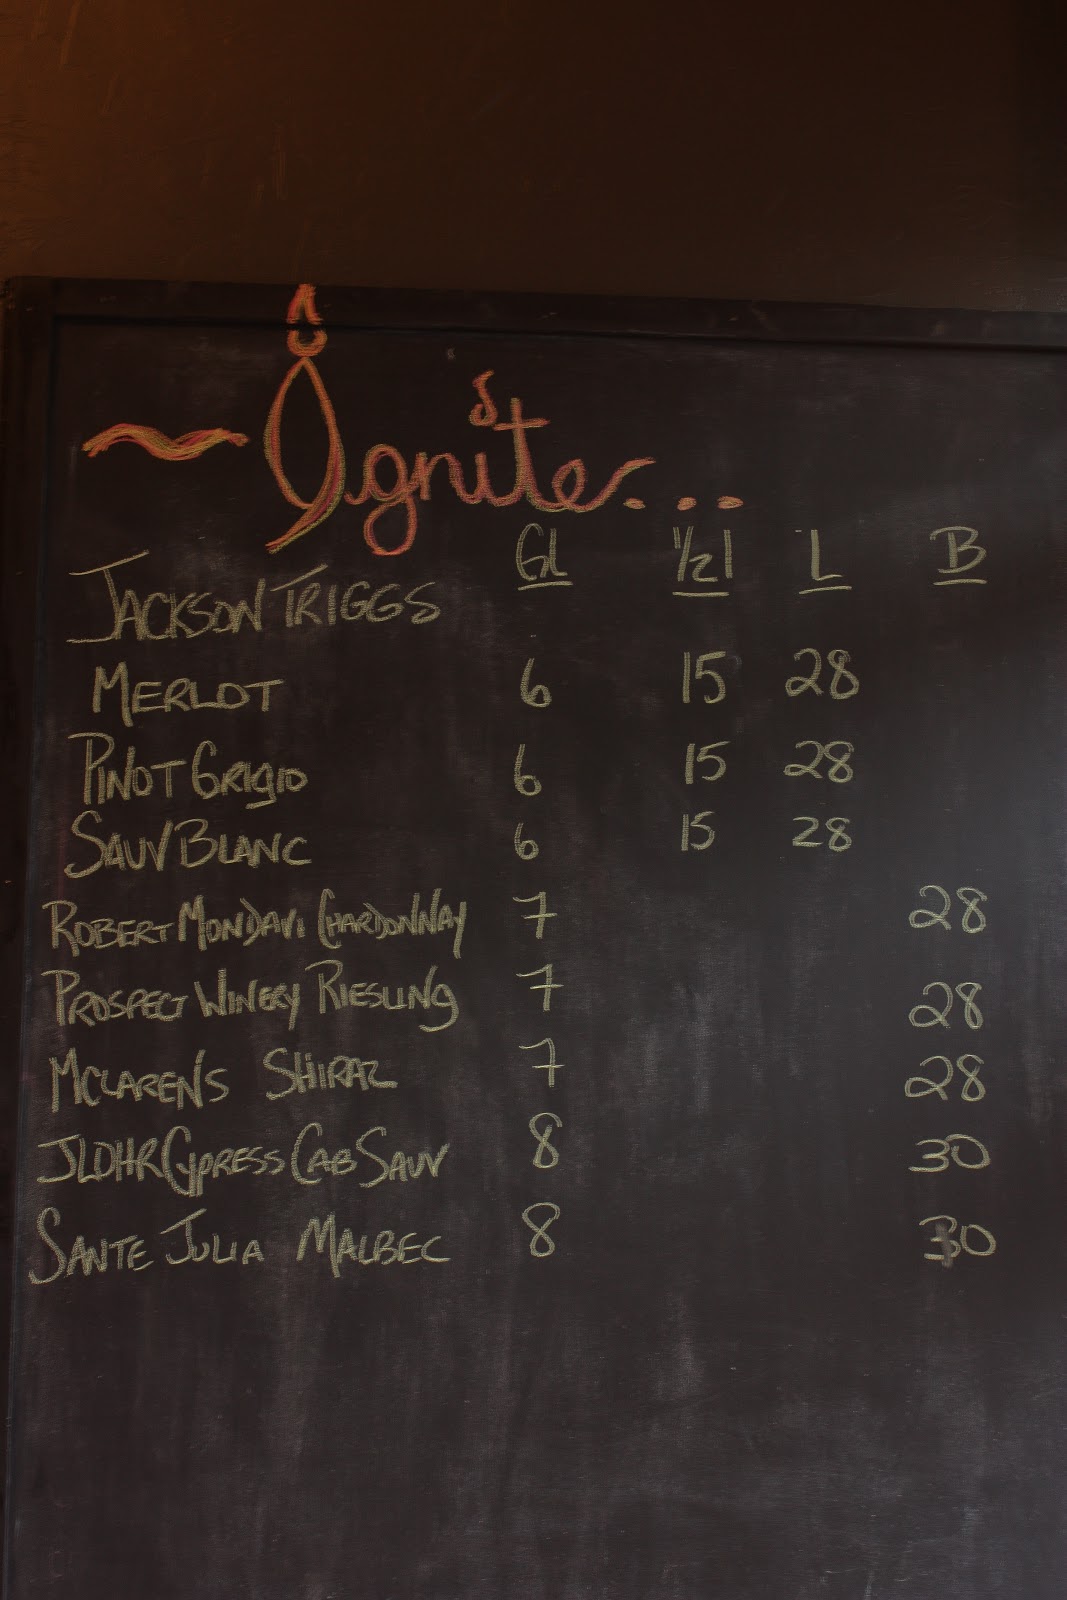 Ignite...
Gl 1/2 l L B
JACKSON TRIGGS
MERLOT 6 15 28
PINOT GRIGIO 6 15 28
SAUV BLANC 6 15 28
ROBERT MONDAVI CHARDONNAY 7 28
PROSPECT WINERY RIESLING 7 28
MCLARENS SHIRAZ 7 28
JLOHR CYPRESS CAB SAUV 8 30
SANTE JULIA MALBEC 8 30